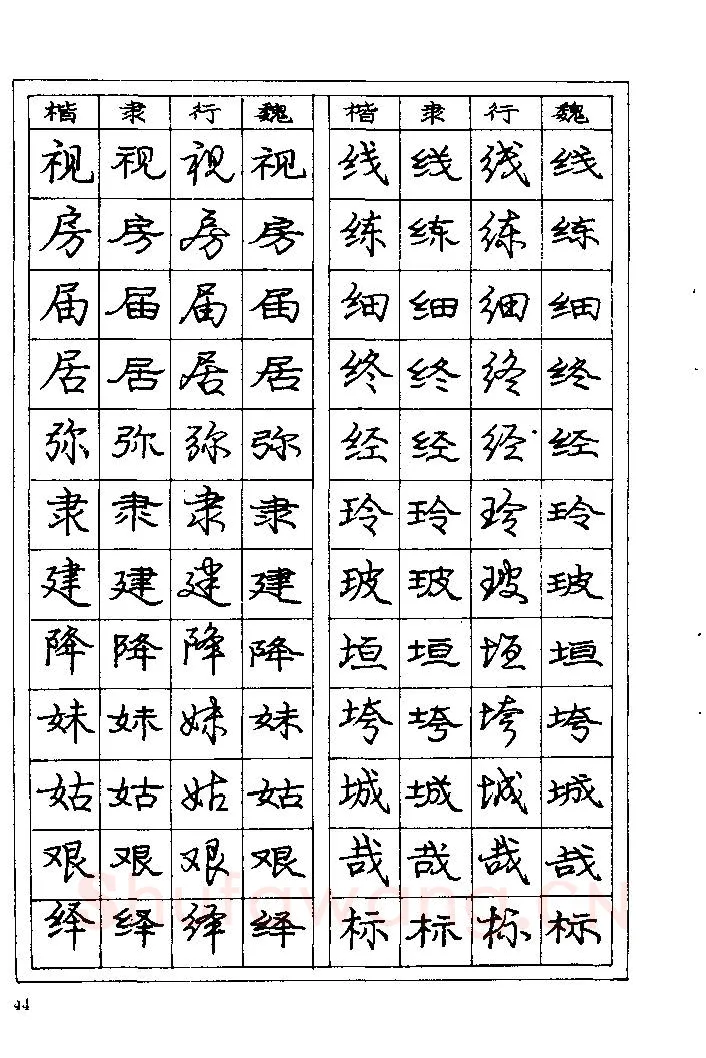 楷 隶 行 魏 楷 隶 行 魏
视 视 视 视 线 线 线 线
房 房 房 房 练 练 练 练
届 届 届 届 细 细 细 细
居 居 居 居 终 终 终 终
弥 弥 弥 弥 经 经 经 经
隶 隶 隶 隶 玲 玲 玲 玲
建 建 建 建 玻 玻 玻 玻
降 降 降 降 垣 垣 垣 垣
妹 妹 妹 妹 垮 垮 垮 垮
姑 姑 姑 姑 城 城 城 城
艰 艰 艰 艰 哉 哉 哉 哉
Shufawang.CN
绎 绎 绎 绎 标 标 标 标
44